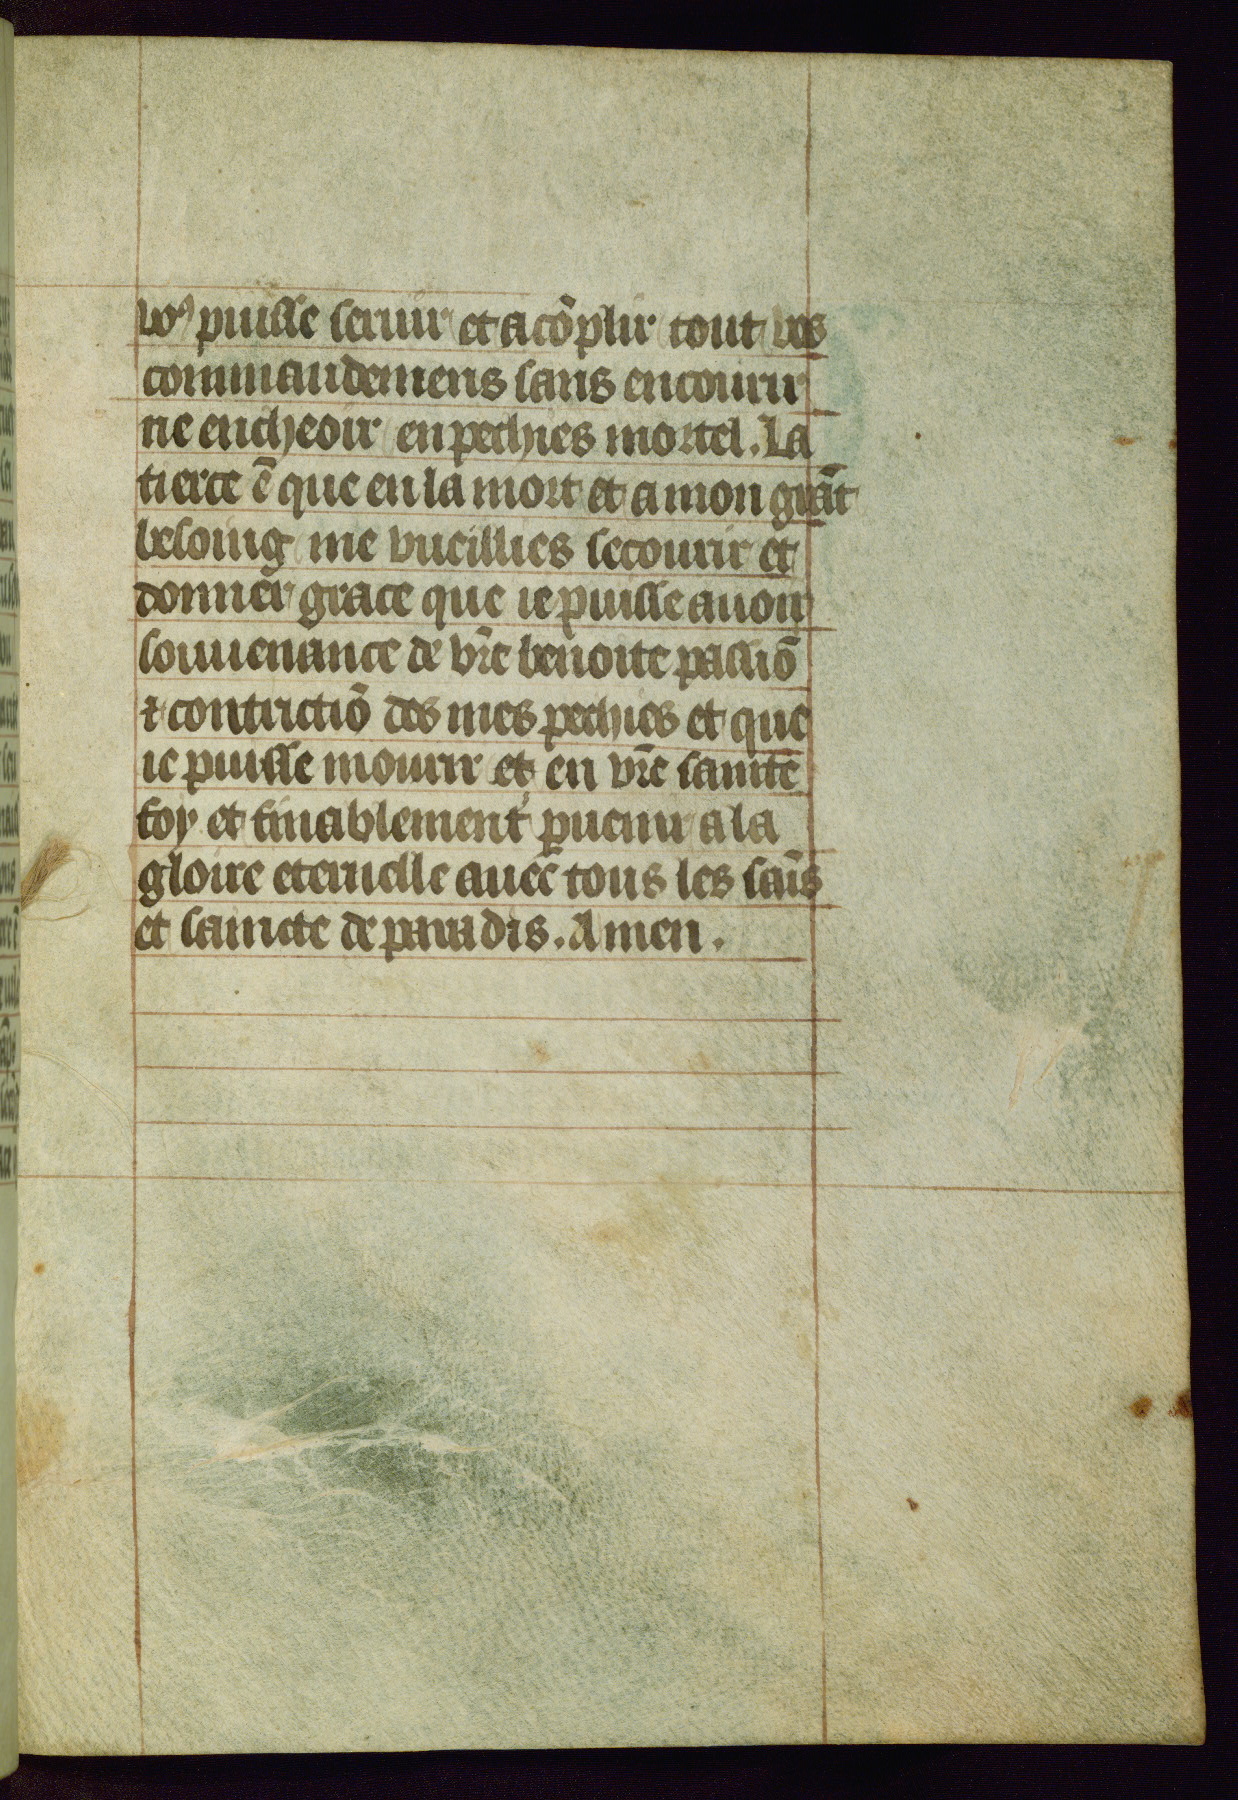 voꝰ puisse seruir et acõplir tout vos
commandemens sans encourir
ne encheoir en pechies mortel. La
tierce ẽ que en la mort et a mon grãt
besoing me vueillies secourir et
donner grace que ie puisse auoir
souuenance de vr̃e benoite passiõ
⁊ contrictiõ des mes pechies et que
ie puisse mourir et en vr̃e saincte
foy et finablement ꝑuenir a la
gloire eternelle auec tous les sais̃
et saincte de paradis. Amen.